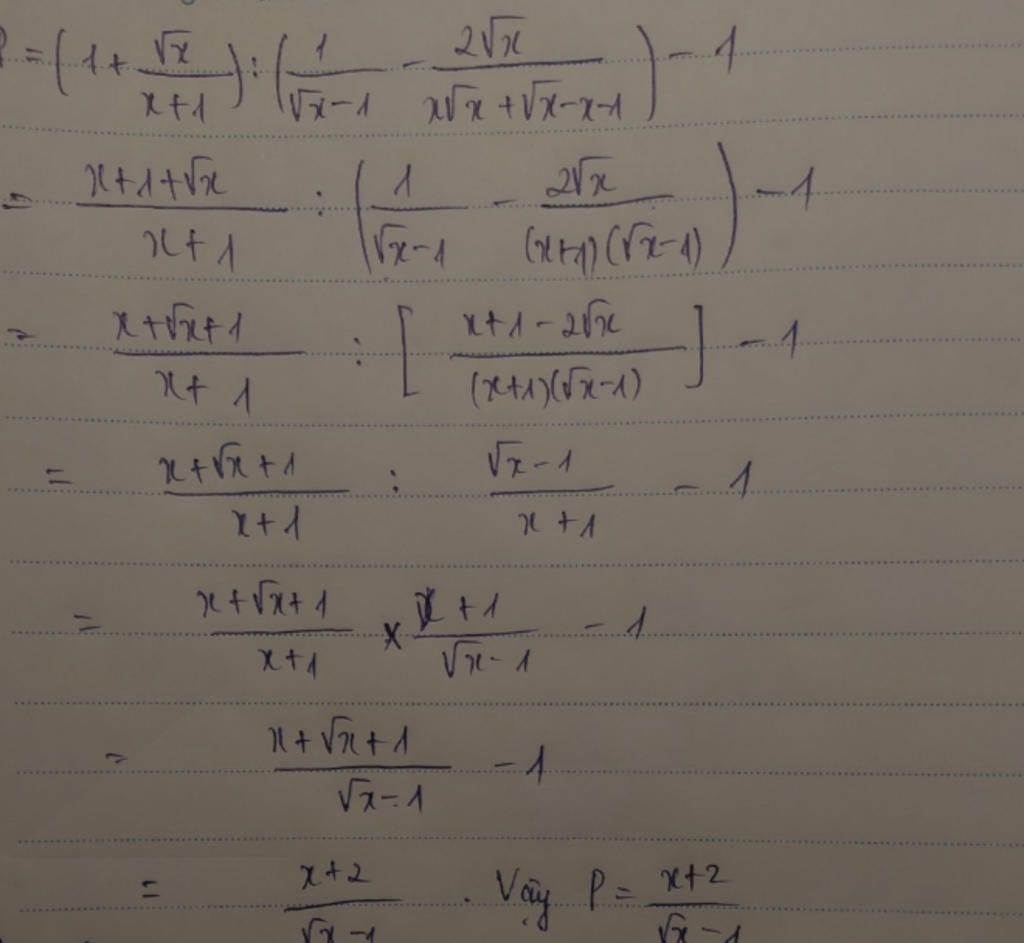 P = (1 + √x/(x+1)) : (1/(√x-1) - 2√x/(x√x+√x-x-1)) - 1
= (x+1+√x)/(x+1) : (1/(√x-1) - 2√x/((x+1)(√x-1))) - 1
= (x+√x+1)/(x+1) : [(x+1-2√x)/((x+1)(√x-1))] - 1
= (x+√x+1)/(x+1) : (√x-1)/(x+1) - 1
= (x+√x+1)/(x+1) × (x+1)/(√x-1) - 1
= (x+√x+1)/(√x-1) - 1
= (x+2)/(√x-1) . Vậy P = (x+2)/(√x-1)